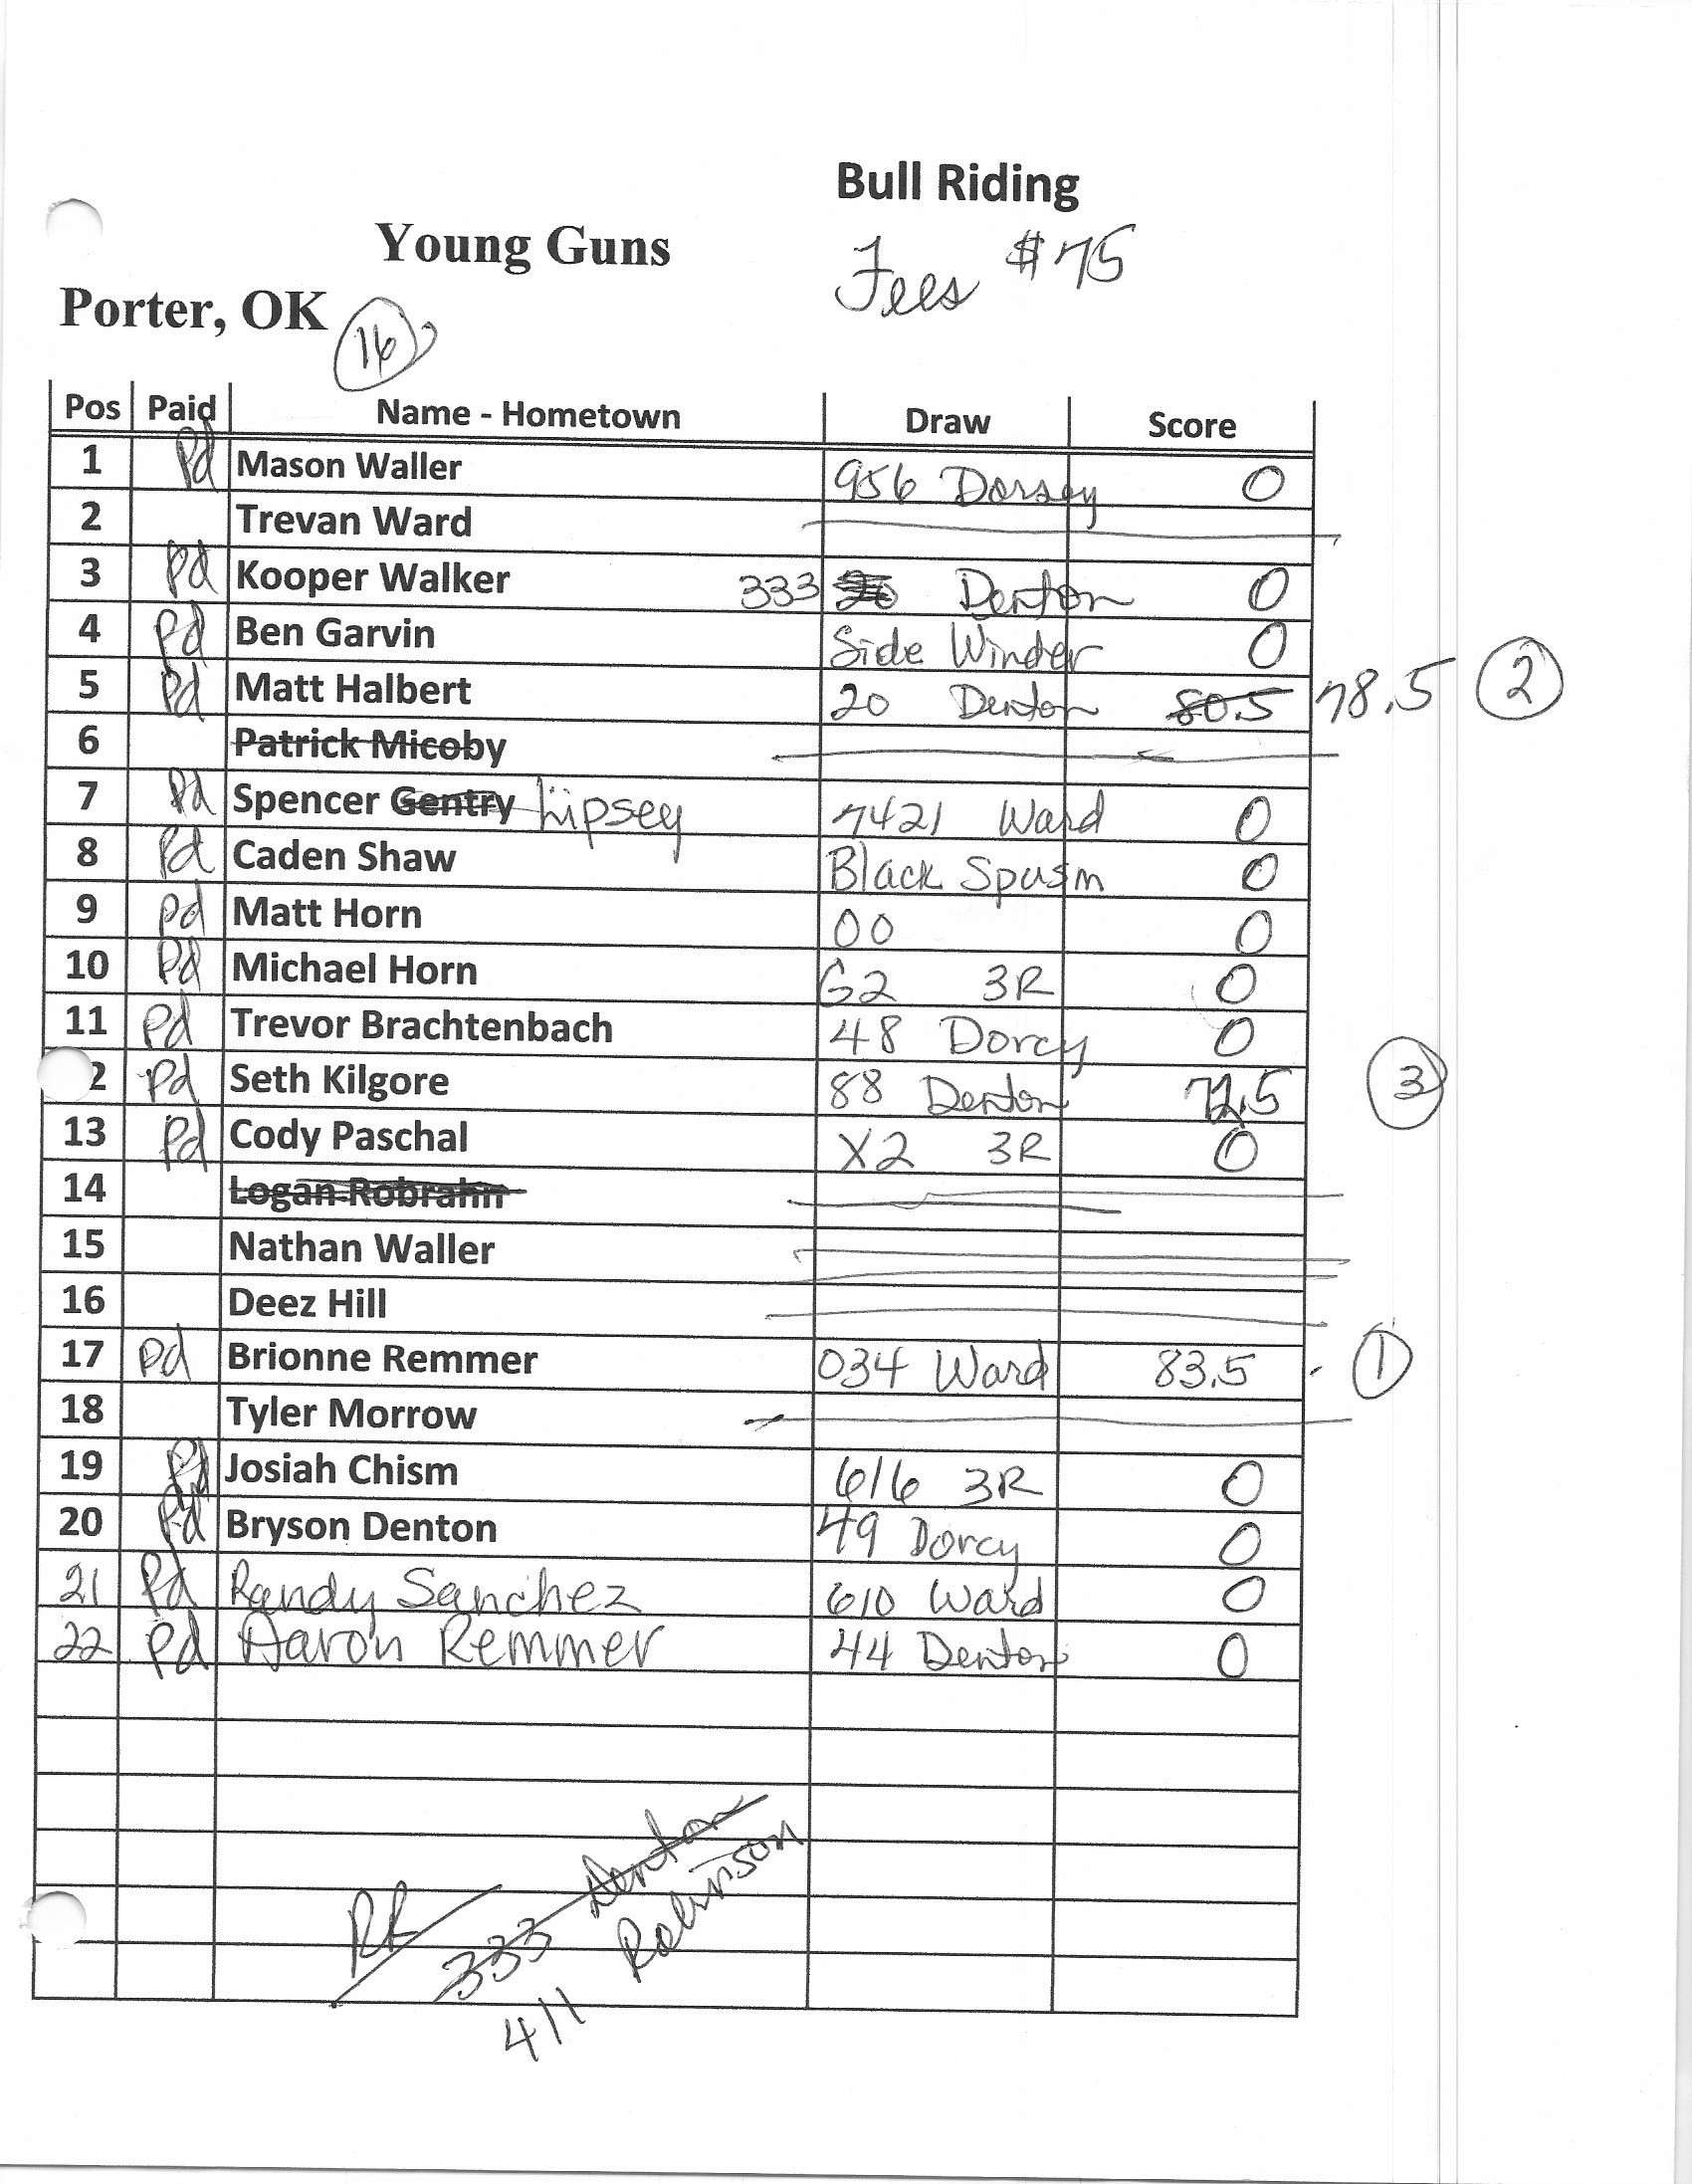 Bull Riding
Young Guns
Fees $75
Porter, OK 16
Pos Paid Name - Hometown Draw Score
1 Pd Mason Waller 956 Dorsey 0
2 Trevan Ward
3 Pd Kooper Walker 333 20 Denton 0
4 Pd Ben Garvin Side Winder 0
5 Pd Matt Halbert 20 Denton 80.5 78.5 2
6 Patrick Micoby
7 Pd Spencer Gentry Lipsey 7421 Ward 0
8 Pd Caden Shaw Black Spasm 0
9 Pd Matt Horn 00 0
10 Pd Michael Horn G2 3R 0
11 Pd Trevor Brachtenbach 48 Dorcy 0
2 Pd Seth Kilgore 88 Denton 72.5 3
13 Pd Cody Paschal X2 3R 0
14 Logan Robrahn
15 Nathan Waller
16 Deez Hill
17 pd Brionne Remmer 034 Ward 83.5 1
18 Tyler Morrow
19 Pd Josiah Chism 616 3R 0
20 Pd Bryson Denton 49 Dorcy 0
21 Pd Randy Sanchez 610 Ward 0
22 pd Aaron Remmer 44 Denton 0
RR 333 Denton
411 Robinson